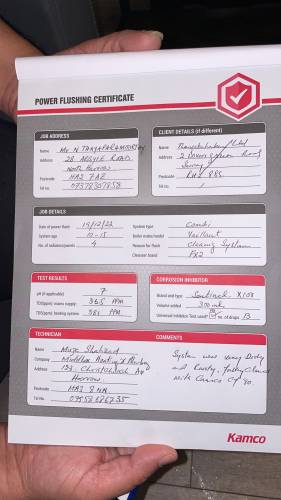 POWER FLUSHING CERTIFICATE
JOB ADDRESS
Name Mr N
Address 28 ARGYLE ROAD
North Harrow
Postcode HA2 7AL
Tel no.
CLIENT DETAILS (if different)
Name
Address 2
Surrey
Postcode
Tel no. /
JOB DETAILS
Date of power flush 19/12/22
System age 10-15
No. of radiators/panels 4
System type Combi
Boiler make/model Vaillant
Reason for flush Cleaning System
Cleanser brand FX2
TEST RESULTS
pH (if applicable) 7
TDS(ppm): mains supply 365 PPM
TDS(ppm): heating system 381 PPM
CORROSION INHIBITOR
Brand and type Sentinel X100
Volume added 300 mL
Universal Inhibitor Test used? no. of drops 13
TECHNICIAN
Name Shahzad
Company Heating & Plumbing
Address 132 Christchurch Av
Harrow
Postcode HA3 8NN
Tel No.
COMMENTS
System was very Dirty
and Rusty.
with Kamco CF 90.
Kamco